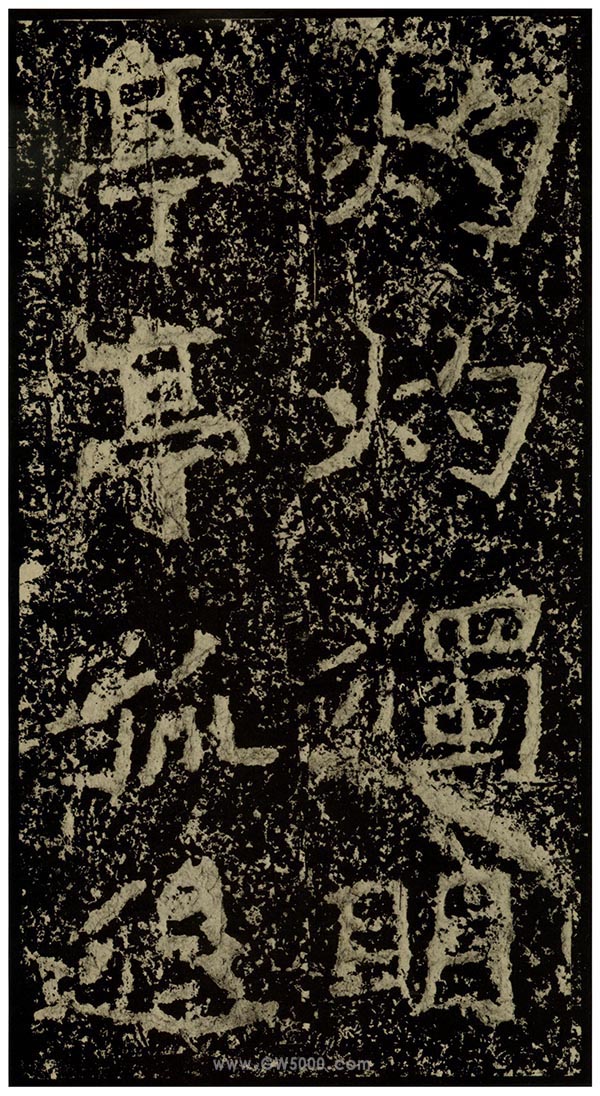 灼灼獨明
亭亭孤
www.GW5000.com